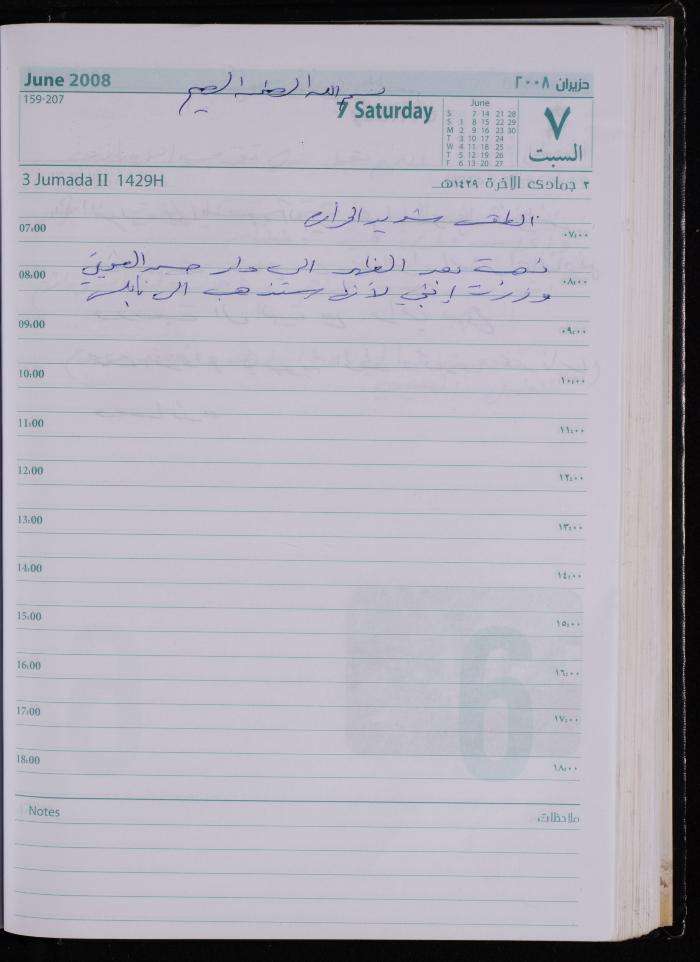 June 2008 حزيران ٢٠٠٨
بسم الله الرحمن الرحيم
159-207
7 Saturday
June
S 7 14 21 28
S 1 8 15 22 29
M 2 9 16 23 30
T 3 10 17 24
W 4 11 18 25
T 5 12 19 26
F 6 13 20 27
٧
السبت
3 Jumada II 1429H ٣ جمادى الآخرة ١٤٢٩هـ
الطقس شديد الحرارة
07:00 ٠٧:٠٠
ذهبت بعد الظهر الى دار
08:00 ٠٨:٠٠
وزرت إبنتي لأنها ستذهب الى نابلس
09:00 ٠٩:٠٠
10:00 ١٠:٠٠
11:00 ١١:٠٠
12:00 ١٢:٠٠
13:00 ١٣:٠٠
14:00 ١٤:٠٠
15:00 ١٥:٠٠
16:00 ١٦:٠٠
17:00 ١٧:٠٠
18:00 ١٨:٠٠
Notes ملاحظات